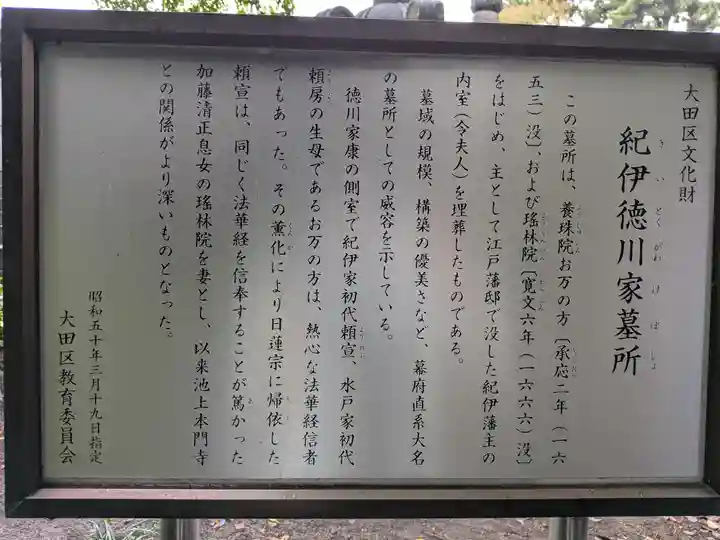 大田区文化財
紀伊徳川家墓所
この墓所は、養珠院お万の方〔承応二年（一六
五三）没〕および瑤林院〔寛文六年（一六六六）没〕
をはじめ、主として江戸藩邸で没した紀伊藩主の
内室（令夫人）を埋葬したものである。
墓域の規模、構築の優美さなど、幕府直系大名
の墓所としての威容を示している。
徳川家康の側室で紀伊家初代頼宣、水戸家初代
頼房の生母であるお万の方は、熱心な法華経信者
でもあった。その薫化により日蓮宗に帰依した
頼宣は、同じく法華経を信奉することが篤かった
加藤清正息女の瑤林院を妻とし、以来池上本門寺
との関係がより深いものとなった。
昭和五十年三月十九日指定
大田区教育委員会